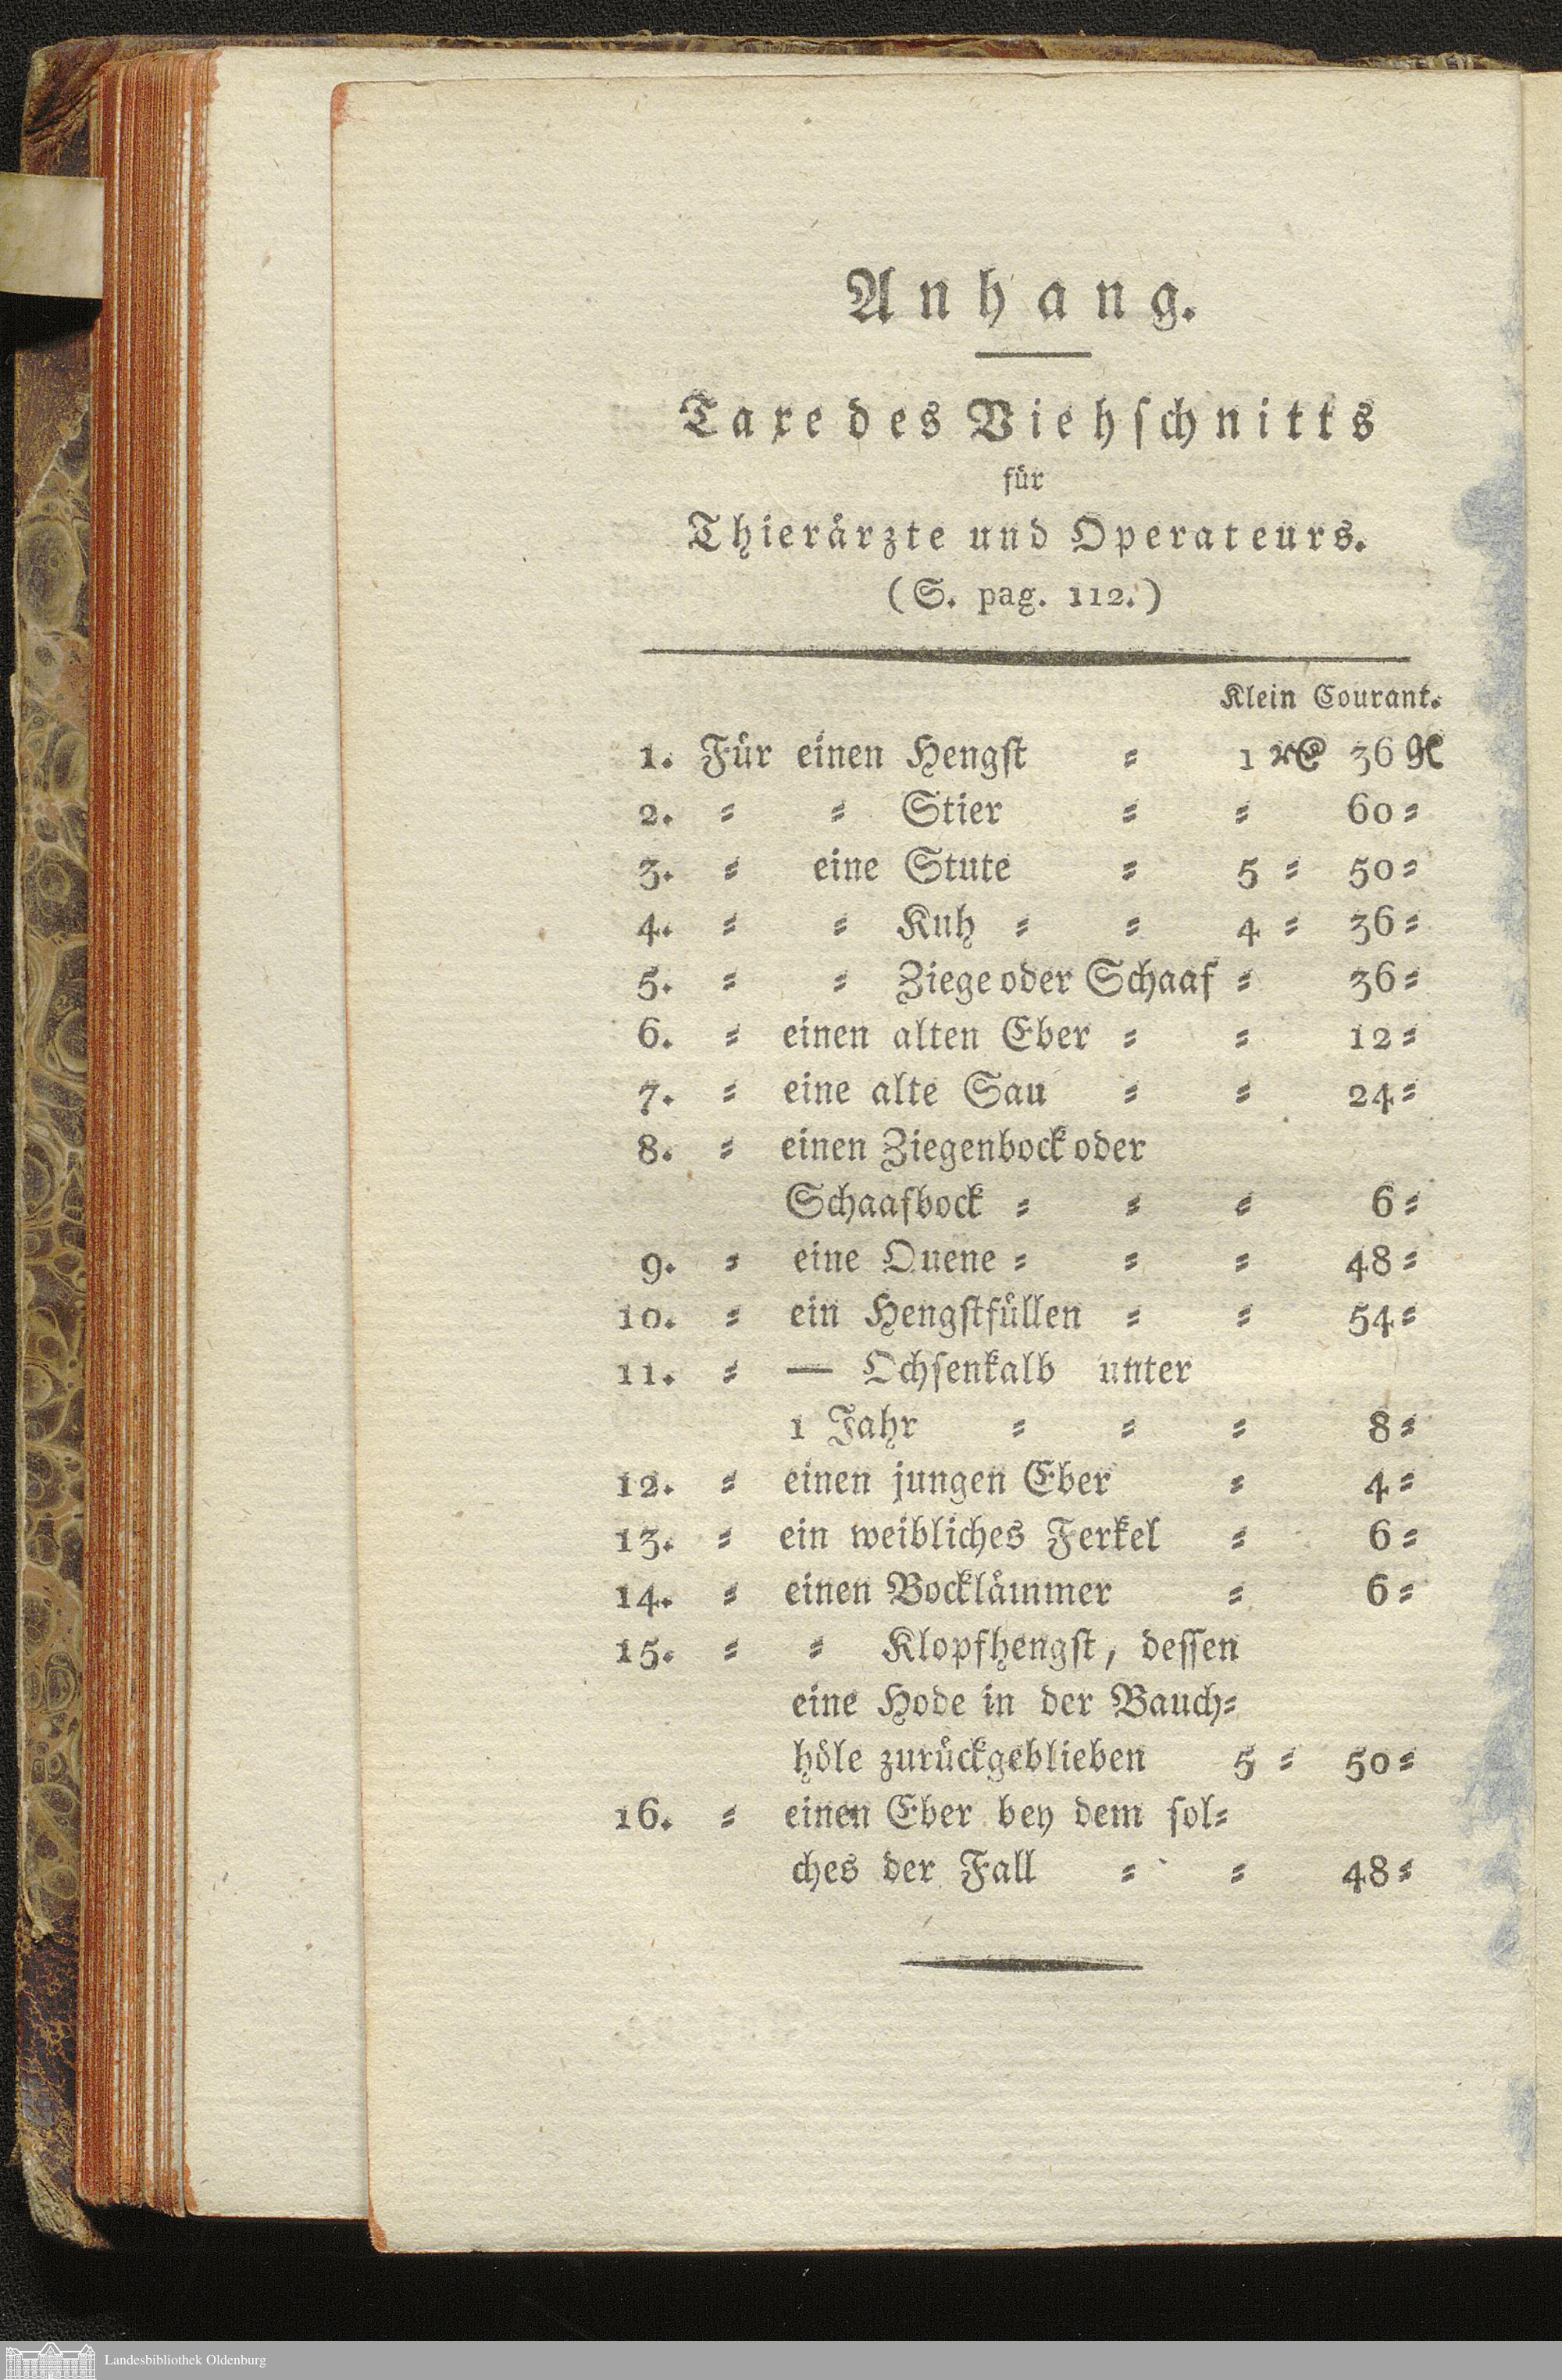 Anhang.
Taxe des Viehschnitts
für
Thierärzte und Operateurs.
(S. pag. 112.)
Klein Courant.
1. Für einen Hengst = 1 36
2. = = Stier = = 60 =
3. = eine Stute = 5 = 50 =
4. = = Kuh = = 4 = 36 =
5. = = Ziege oder Schaaf = 36 =
6. = einen alten Eber = = 12 =
7. = eine alte Sau = = 24 =
8. = einen Ziegenbock oder
Schaafbock = = = 6 =
9. = eine Quene = = = 48 =
10. = ein Hengstfüllen = = 54 =
11. = — Ochsenkalb unter
1 Jahr = = = 8 =
12. = einen jungen Eber = 4 =
13. = ein weibliches Ferkel = 6 =
14. = einen Bocklämmer = 6 =
15. = = Klopfhengst, dessen
eine Hode in der Bauch=
höle zurückgeblieben 5 = 50 =
16. = einen Eber bey dem sol=
ches der Fall = = 48 =
Landesbibliothek Oldenburg